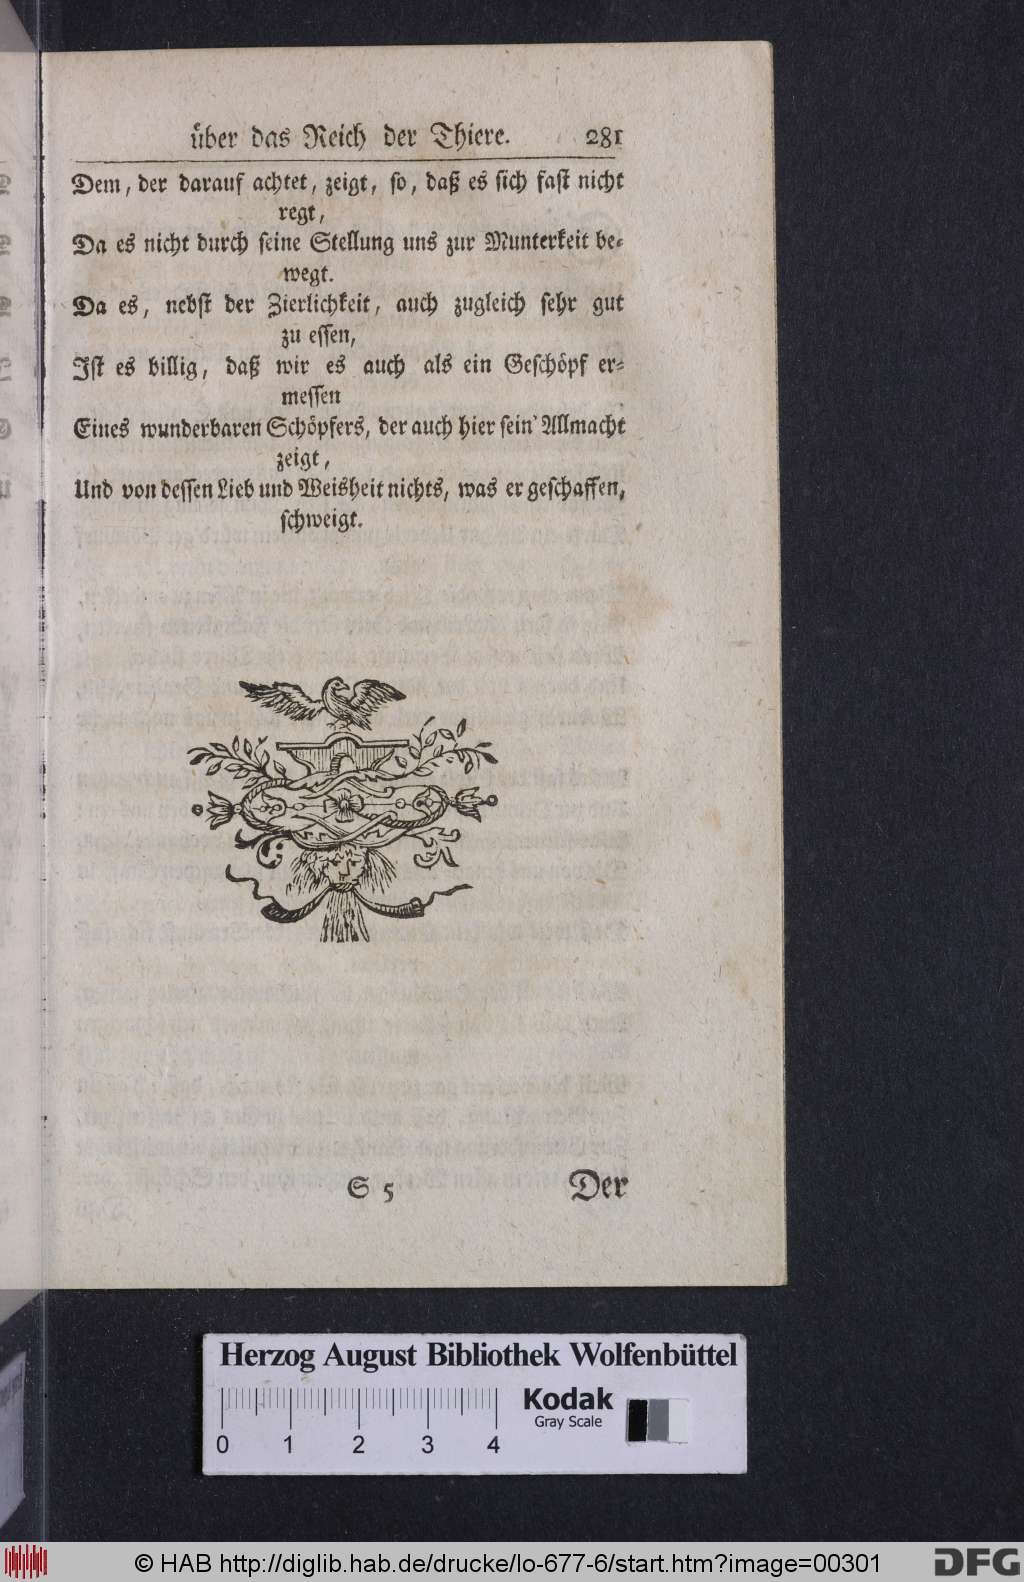 über das Reich der Thiere. 281
Dem, der darauf achtet, zeigt, so, daß es sich fast nicht
regt,
Da es nicht durch seine Stellung uns zur Munterkeit be-
wegt.
Da es, nebst der Zierlichkeit, auch zugleich sehr gut
zu essen,
Ist es billig, daß wir es auch als ein Geschöpf er-
messen
Eines wunderbaren Schöpfers, der auch hier sein' Allmacht
zeigt,
Und von dessen Lieb und Weisheit nichts, was er geschaffen,
schweigt.
S 5 Der
Herzog August Bibliothek Wolfenbüttel
Kodak
Gray Scale
0 1 2 3 4
© HAB http://diglib.hab.de/drucke/lo-677-6/start.htm?image=00301
DFG